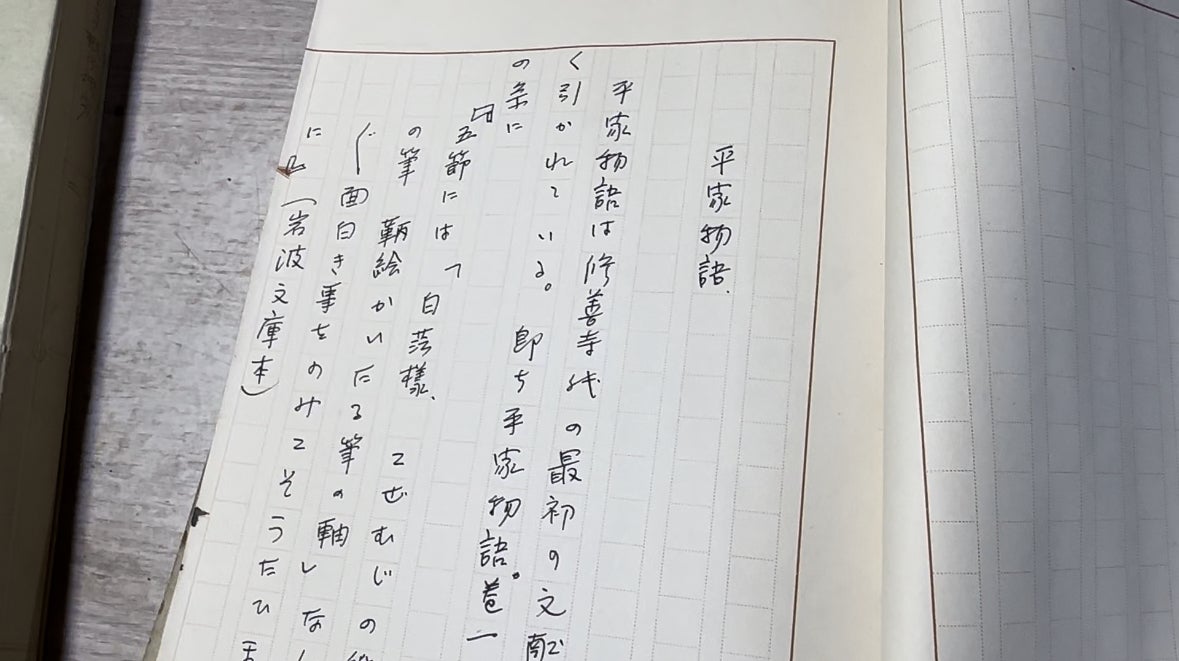 平家物語、
平家物語は修善寺紙の最初の文献
く引かれている。即ち平家物語。巻一
の条に
曰
五節には「白薄様、こぜむじの紙
の筆 鞆絵かいたる筆の軸しな
〲面白き事をのみこそうたひ
に」(岩波文庫本)